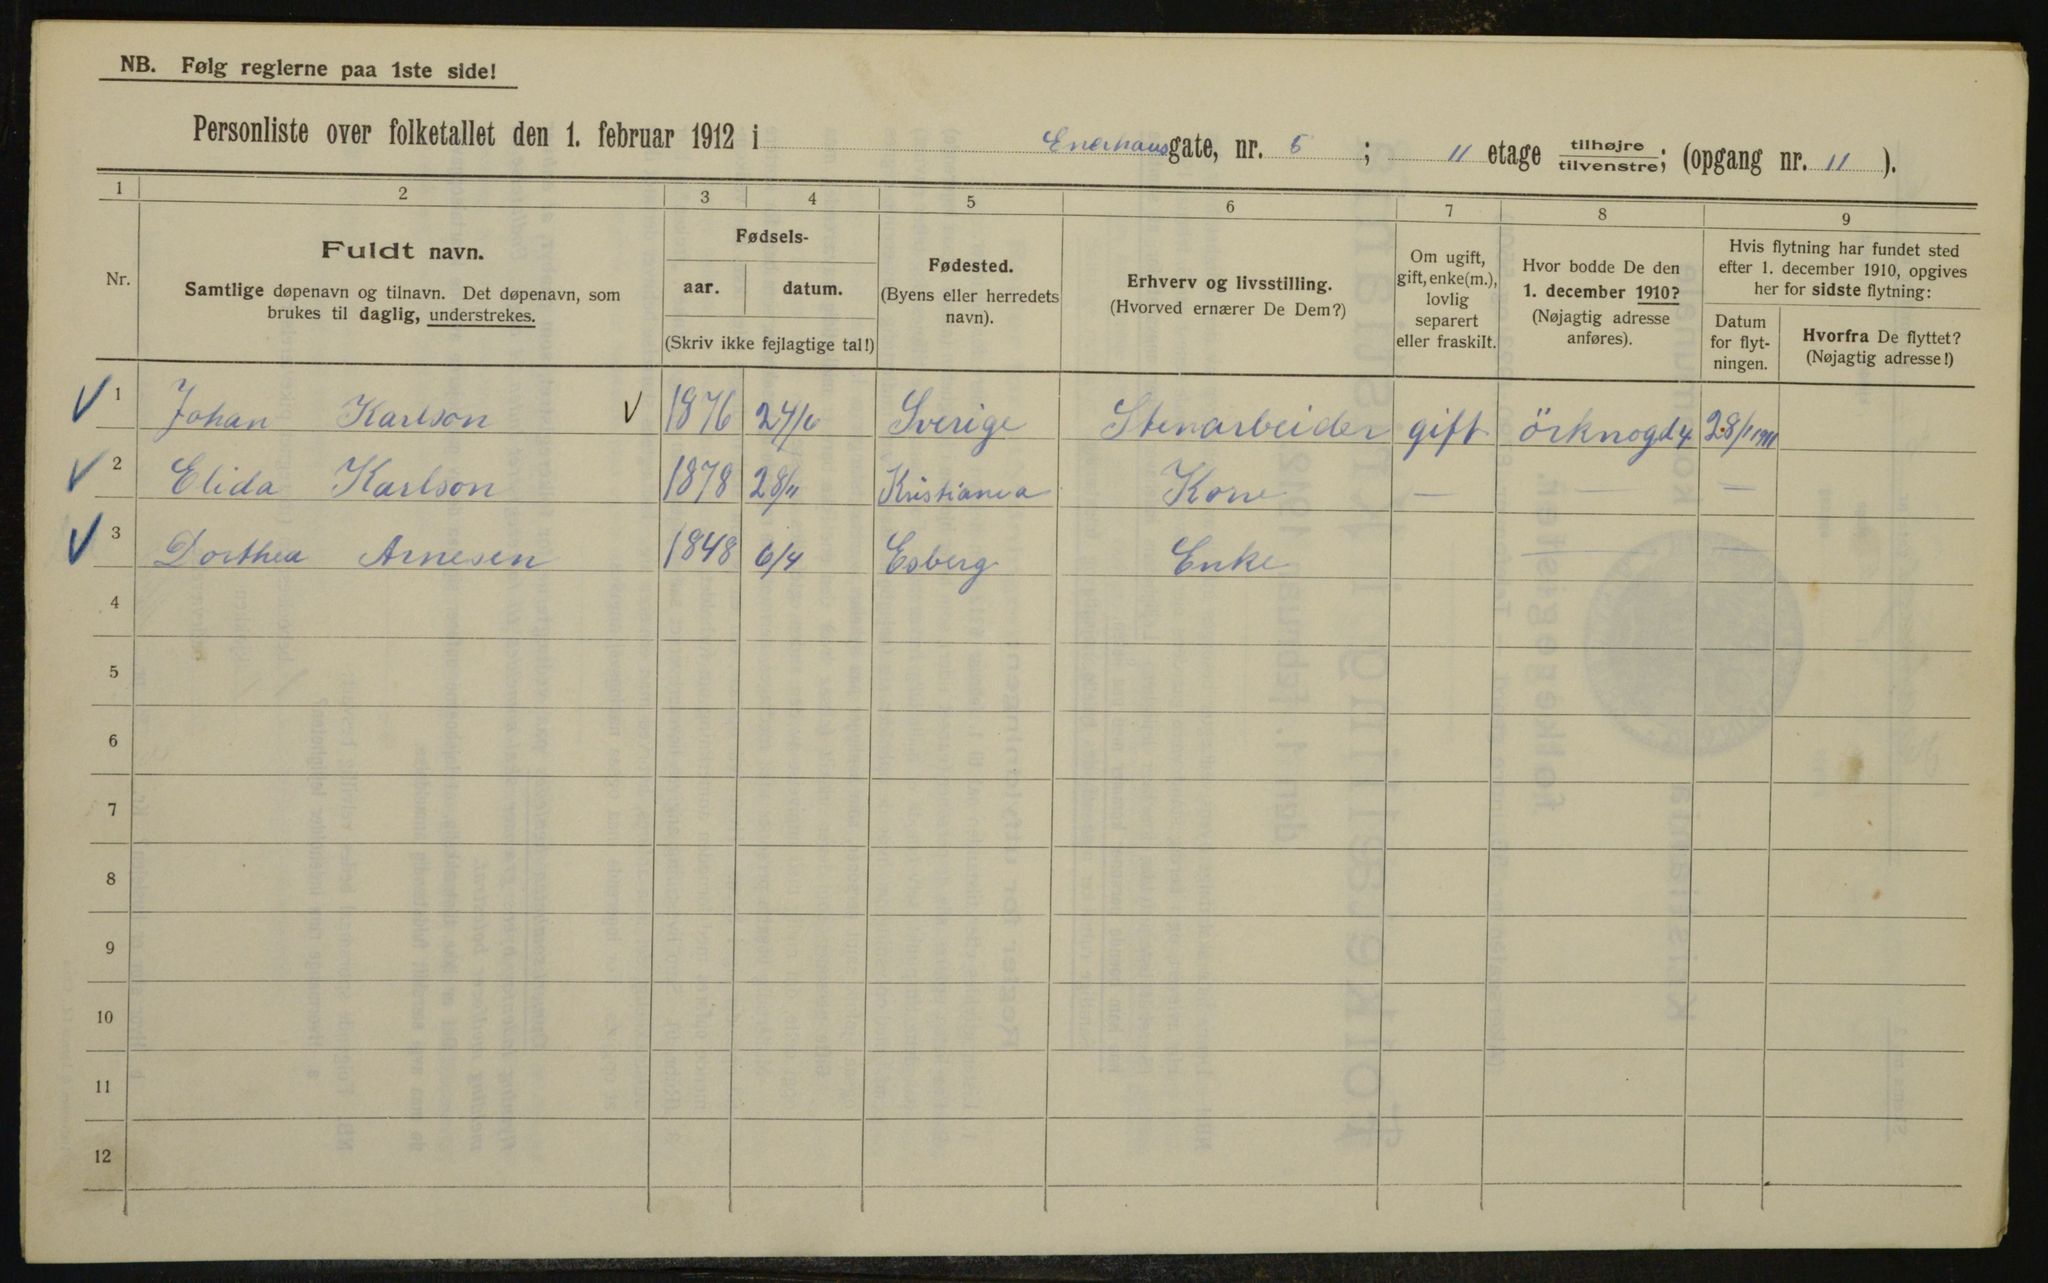 NB. Følg reglerne paa 1ste side!
Personliste over folketallet den 1. februar 1912 i Enerhausgate, nr. 5; 11 etage tilhøjre/tilvenstre; (opgang nr. 11).
1 2 3 4 5 6 7 8 9
Nr.
Fuldt navn.
Samtlige døpenavn og tilnavn. Det døpenavn, som
brukes til daglig, understrekes.
Fødsels-
aar. datum.
(Skriv ikke fejlagtige tal!)
Fødested.
(Byens eller herredets
navn).
Erhverv og livsstilling.
(Hvorved ernærer De Dem?)
Om ugift,
gift, enke(m.),
lovlig
separert
eller fraskilt.
Hvor bodde De den
1. december 1910?
(Nøjagtig adresse
anføres).
Hvis flytning har fundet sted
efter 1. december 1910, opgives
her for sidste flytning:
Datum
for flyt-
ningen.
Hvorfra De flyttet?
(Nøjagtig adresse!)
1 Johan Karlson 1876 24/6 Sverige Stenarbeider gift örknogd 4 28/1 1911
2 Elida Karlson 1878 28/11 Kristiania Kone — — —
3 Dorthea Arnesen 1848 6/4 Esberg Enke — —
4
5
6
7
8
9
10
11
12